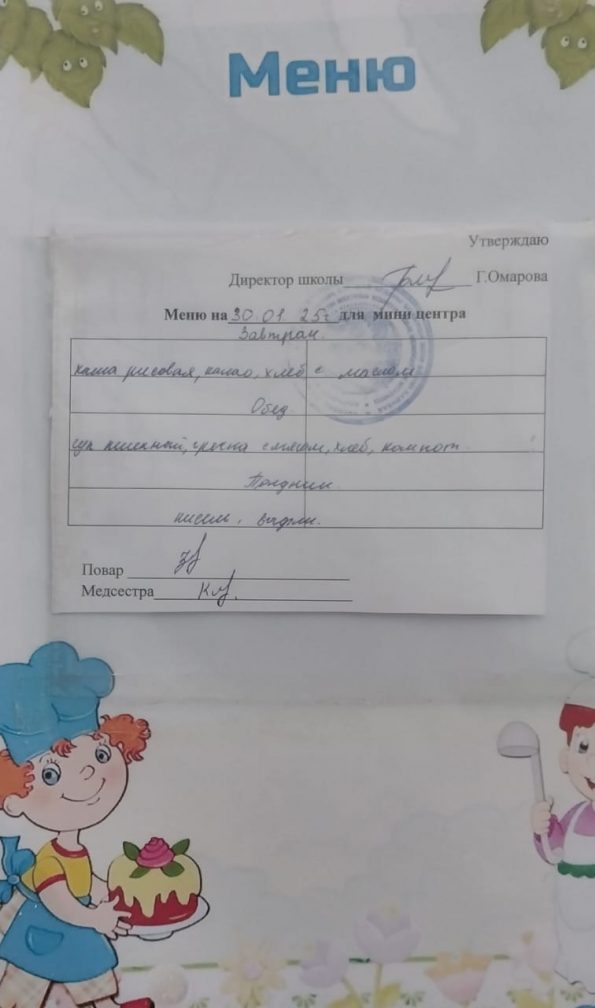 Меню
Утверждаю
Директор школы Г.Омарова
Меню на 30.01.25г для мини центра
Завтрак.
каша рисовая, какао, хлеб с маслом
Обед
суп пшенный, гречка с мясом, хлеб, компот.
Полдник.
кисель, вафли.
Повар
Медсестра